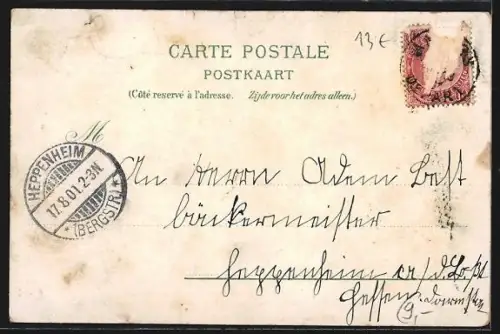 13 €
CARTE POSTALE
POSTKAART
(Côté reservé à l'adresse. Zijde voor het adres alleen.)
M
HEPPENHEIM
17.8.01.2-3N.
*(BERGSTR)*
An Herrn Adam Best
bäckermeister
Heppenheim a/d.
Hessen-Darmst
9,-